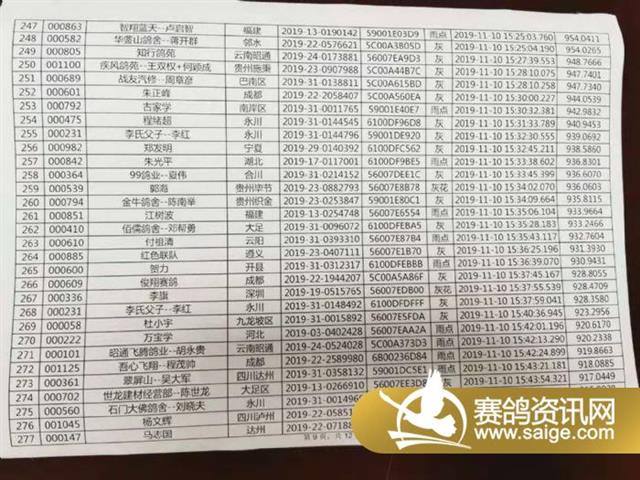 247 000863 智翔蓝天--卢启智 福建 2019-13-0190142 59001E03D9 雨点 2019-11-10 15:25:03.760 954.0411
248 000582 华蓥山鸽舍--蒋开群 邻水 2019-22-0576621 5C00A3B05D 灰 2019-11-10 15:25:04.190 954.0265
249 000805 知行鸽苑 云南昭通 2019-24-0173881 56007EA9D3 灰 2019-11-10 15:27:39.553 948.7666
250 001100 疾风鸽苑--王双权+何颖成 贵州施秉 2019-23-0907988 5C00A44B7C 灰 2019-11-10 15:28:10.075 947.7401
251 000689 战友汽修--周章彦 巴南区 2019-31-0138811 5C00A615BD 灰 2019-11-10 15:28:12.260
252 000601 朱正峰 成都 2019-22-2058407 5C00A560EA 灰 2019-11-10 15:30:00.227 944.0539
253 000792 古家学 南岸区 2019-31-0011765 59001E40E7 雨点 2019-11-10 15:30:32.381 942.9832
254 000475 程绪超 永川 2019-31-0144545 6100DF96D8 灰 2019-11-10 15:31:33.789 940.9453
255 000231 李氏父子--李红 永川 2019-31-0144796 59001DE920 灰 2019-11-10 15:32:30.555 939.0692
256 000982 郑发明 宁夏 2019-29-0140392 6100DFC562 灰 2019-11-10 15:32:45.210 938.5860
257 000842 朱光平 湖北 2019-17-0117001 6100DF9BE5 雨点 2019-11-10 15:33:38.602 936.8301
258 000364 99鸽业--夏伟 合川 2019-31-0214212 56007DEE1C 灰 2019-11-10 15:33:45.499 936.6070
259 000539 郭海 贵州毕节 2019-23-0882793 56007E8B78 灰花 2019-11-10 15:34:02.070 936.0603
260 000794 金牛鸽舍--陈南举 贵州织金 2019-23-0253847 59001E80C1 灰 2019-11-10 15:34:09.664 935.8115
261 000851 江树波 福建 2019-13-0254748 56007E6554 雨点 2019-11-10 15:35:06.104 933.9664
262 000410 佰儒鸽舍--邓帮勇 大足 2019-31-0096072 6100DFEBA5 灰 2019-11-10 15:35:28.185 933.2466
263 000610 付祖清 云阳 2019-31-0393310 56007E87B4 雨点 2019-11-10 15:35:43.117 932.7604
264 000885 红色联队 遵义 2019-23-0407111 56007E1B70 灰 2019-11-10 15:36:25.196 931.3930
265 000600 贺力 开县 2019-31-0312317 6100DFEBBB 灰 2019-11-10 15:36:39.129 930.9431
266 000609 俊翔赛鸽 成都 2019-22-1944207 5C00A5A86F 灰 2019-11-10 15:37:45.167 928.8055
267 000336 李旗 深圳 2019-19-0515765 56007EDB00 灰花 2019-11-10 15:37:55.539
268 000231 李氏父子--李红 永川 2019-31-0148492 6100DFDFFF 灰 2019-11-10 15:37:59.041 928.3580
269 000058 杜小宇 九龙坡区 2019-31-0015892 56007E05FA 灰 2019-11-10 15:40:36.945 923.2956
270 000222 万宝学 河北 2019-03-0402428 56007EAA2A 雨点 2019-11-10 15:42:01.196 920.6170
271 000101 昭通飞腾鸽业--胡永贵 云南昭通 2019-24-0524028 5C00A373D3 雨点 2019-11-10 15:42:13.290
272 001125 吾心飞翔--程茂帅 成都 2019-22-2589980 6B00236D84 雨点 2019-11-10 15:42:24.288 919.8663
273 000361 翠屏山--吴大军 四川达州 2019-31-0005241 59001DC5E1 雨点 2019-11-10 15:43:21.181 918.0885
274 000702 世龙建材经营部--陈世龙 大足区 2019-13-0266910 56007EE3D 灰 2019-11-10 15:43:54.321 917.0449
275 000560 石门大佛鸽舍--刘晓夫 永川
276 001045 杨文辉 四川泸州
277 000147 马志国 达州
第9页，共12
赛鸽资讯网
www.saige.com